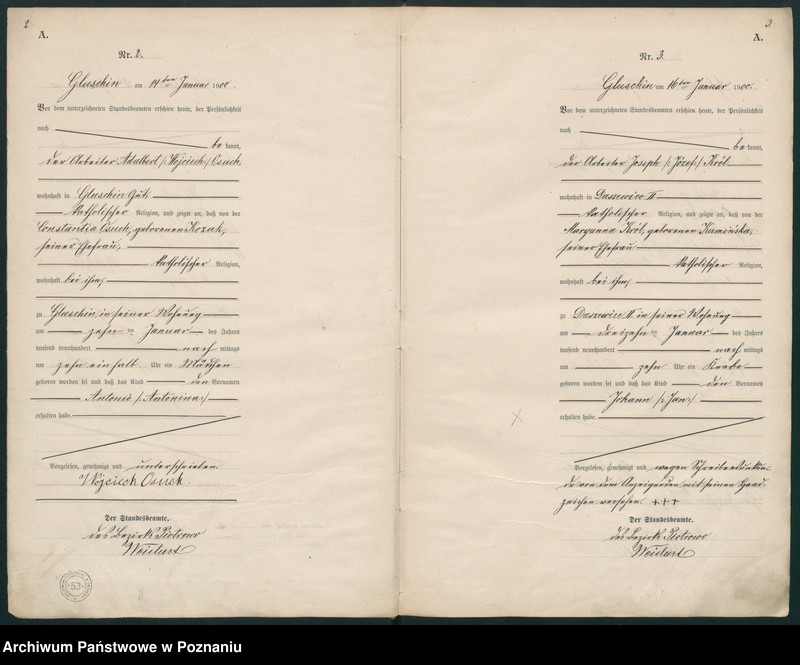 2
A.
Nr. 2.
Gluschin am 14ten Januar 1900.
Vor dem unterzeichneten Standesbeamten erschien heute, der Persönlichkeit
nach
bekannt,
der Arbeiter Adalbert /: Wojciech :/ Osuch
wohnhaft in Gluschin Gut
katholischer Religion, und zeigte an, daß von der
Constantia Osuch, geborenen Kozak,
seiner Ehefrau,
katholischer Religion,
wohnhaft bei ihm,
zu Gluschin in seiner Wohnung
am zehnten Januar des Jahres
tausend neunhundert nachmittags
um zehn einhalb Uhr ein Mädchen
geboren worden sei und daß das Kind den Vornamen
Antonie /: Antonina :/
erhalten habe.
Vorgelesen, genehmigt und unterschrieben.
Wojciech Osuch.
Der Standesbeamte.
des Bezirks Piotrowo
Weichert
53
3.
A.
Nr. 3.
Gluschin am 16ten Januar 1900.
Vor dem unterzeichneten Standesbeamten erschien heute, der Persönlichkeit
nach
bekannt,
der Arbeiter Joseph /: Józef :/ Król
wohnhaft in Daszewice II
katholischer Religion, und zeigte an, daß von der
Maryanna Król, geborenen Kamińska,
seiner Ehefrau
katholischer Religion,
wohnhaft bei ihm,
zu Daszewice II in seiner Wohnung
am dreizehnten Januar des Jahres
tausend neunhundert nachmittags
um zehn Uhr ein Knabe
geboren worden sei und daß das Kind den Vornamen
Johann /: Jan :/
erhalten habe.
Vorgelesen, genehmigt und wegen Schreibensunkun-
de von dem Anzeigenden mit seinem Hand
zeichen versehen. +++
Der Standesbeamte.
des Bezirks Piotrowo
Weichert
Archiwum Państwowe w Poznaniu